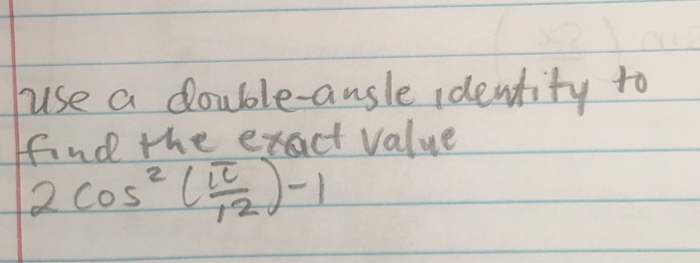 use a double-angle identity to
find the exact value
2 cos² (π/12) - 1